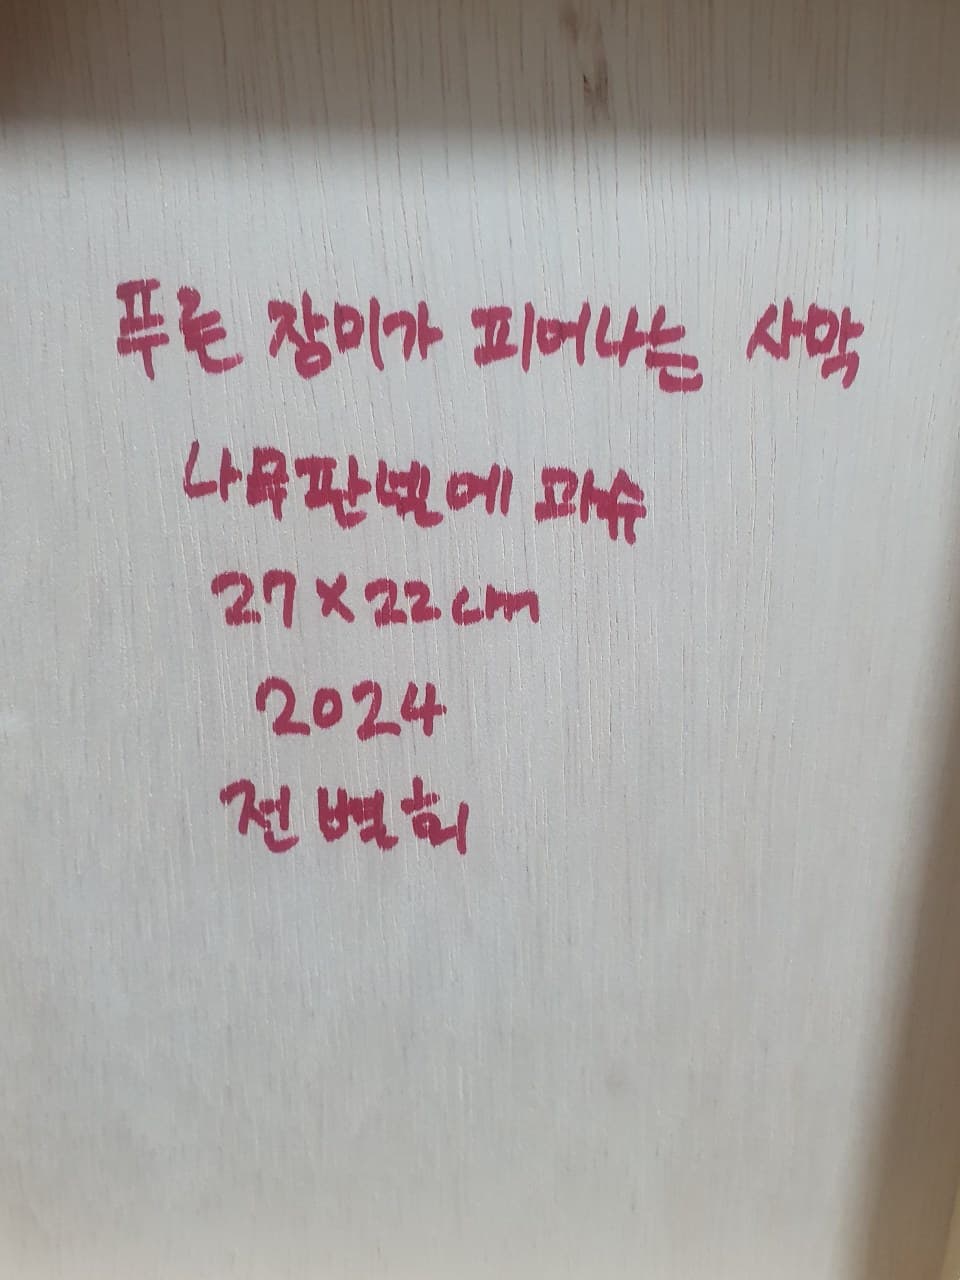 푸른 장미가 피어나는 사막
나무판넬에 과슈
27×22cm
2024
전별희